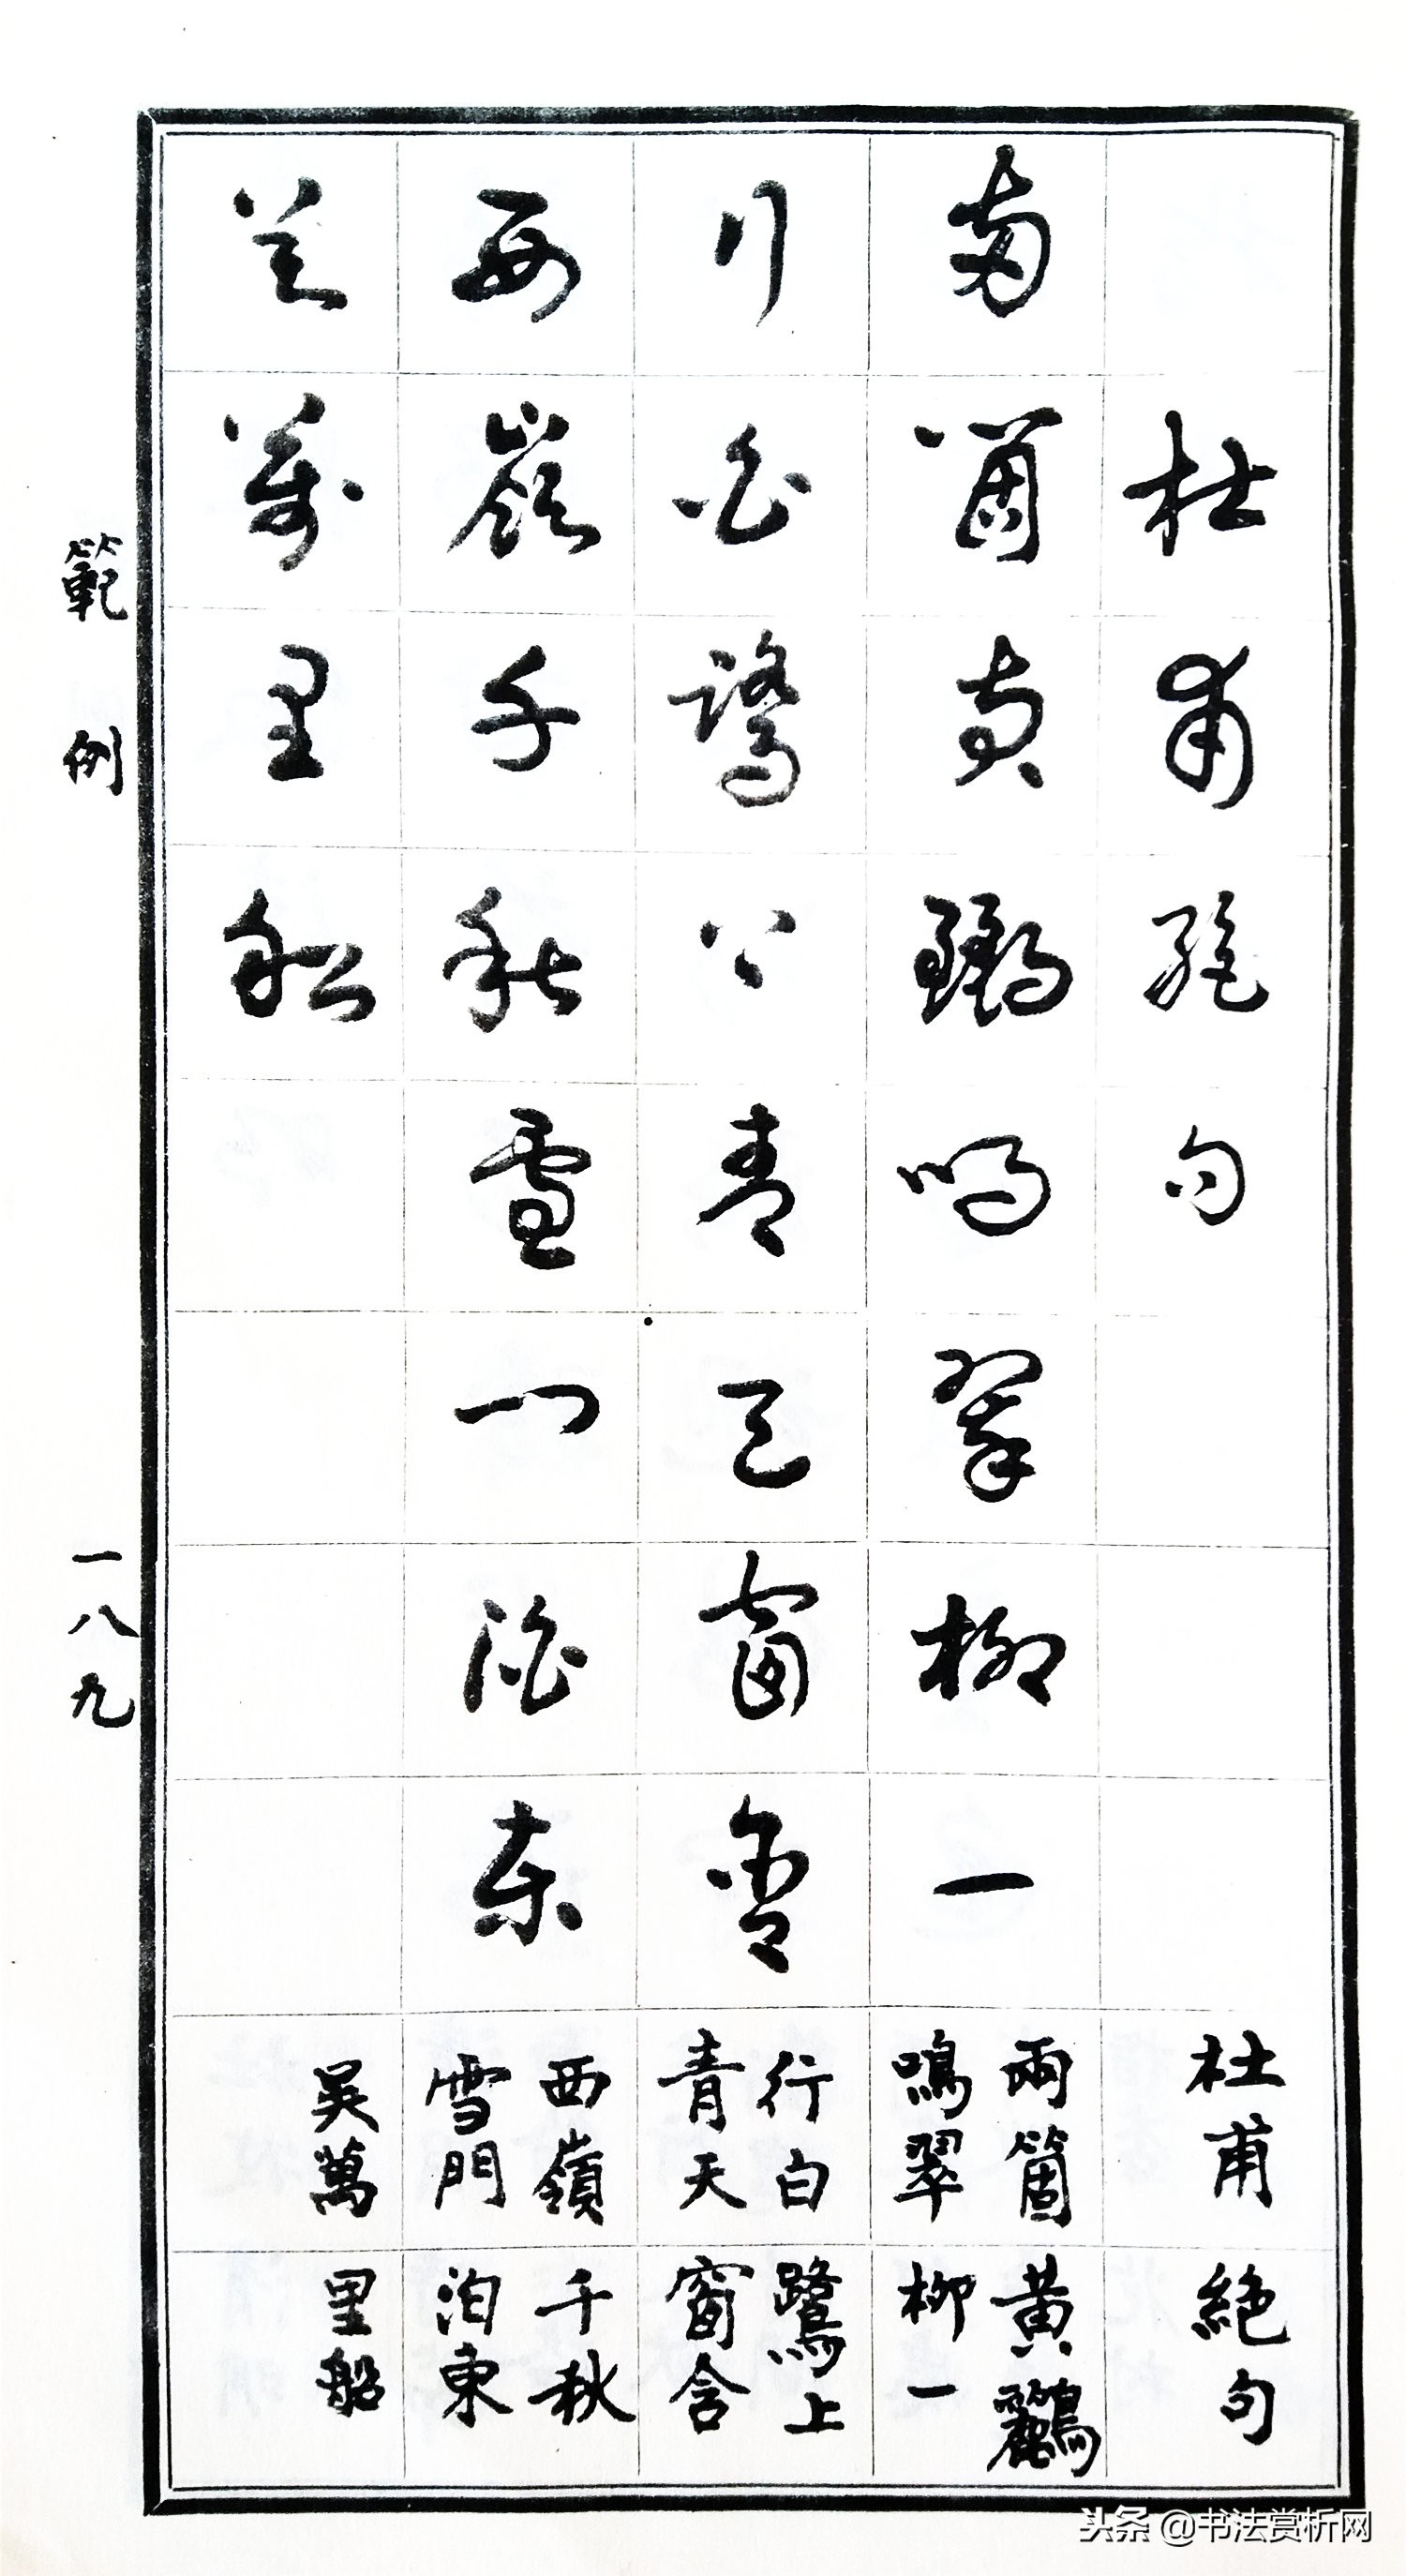 杜甫絕句
兩箇黃鸝鳴翠柳一
行白鷺上青天窗含
西嶺千秋雪門泊東
吳萬里船
杜甫絕句
兩箇黃鸝
鳴翠柳一
行白鷺上
青天窗含
西嶺千秋
雪門泊東
吳萬里船
範例
一八九
头条 @书法赏析网